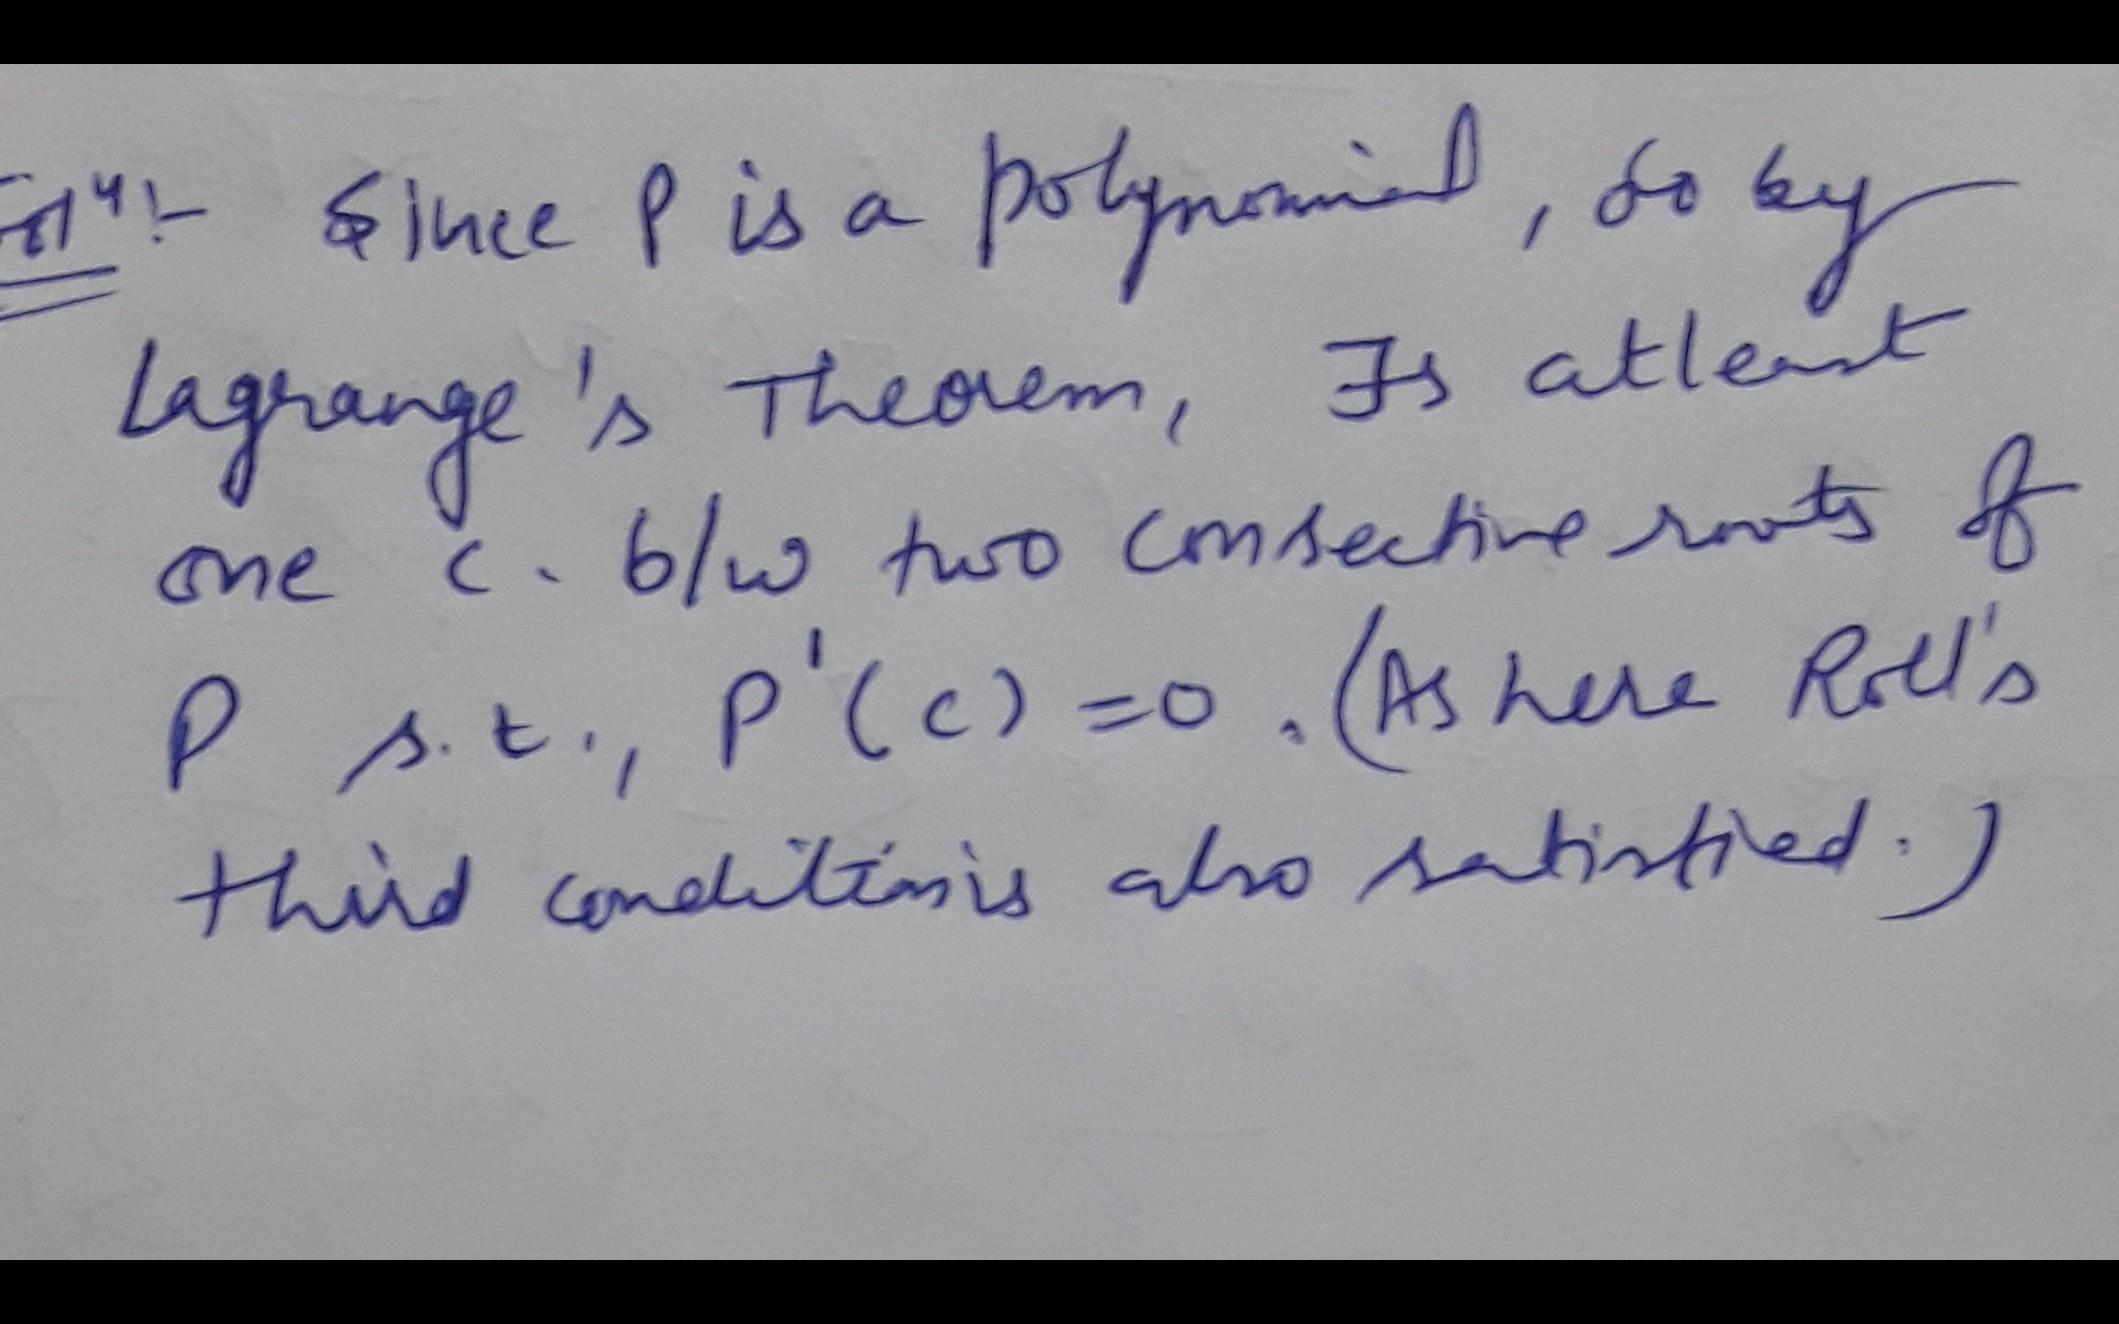 Solⁿ:- Since P is a polynomial, so by
Lagrange's Theorem, Is atleast
one c. b/w two consective roots of
P s.t., P'(c) = 0. (As here Roll's
third condition is also satisfied.)